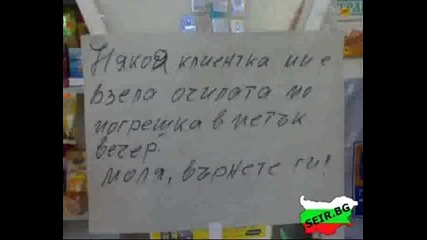 Някоя клиентка ни е
взела очилата по
погрешка в петък
вечер.
Моля, върнете ги!
SEIR.BG